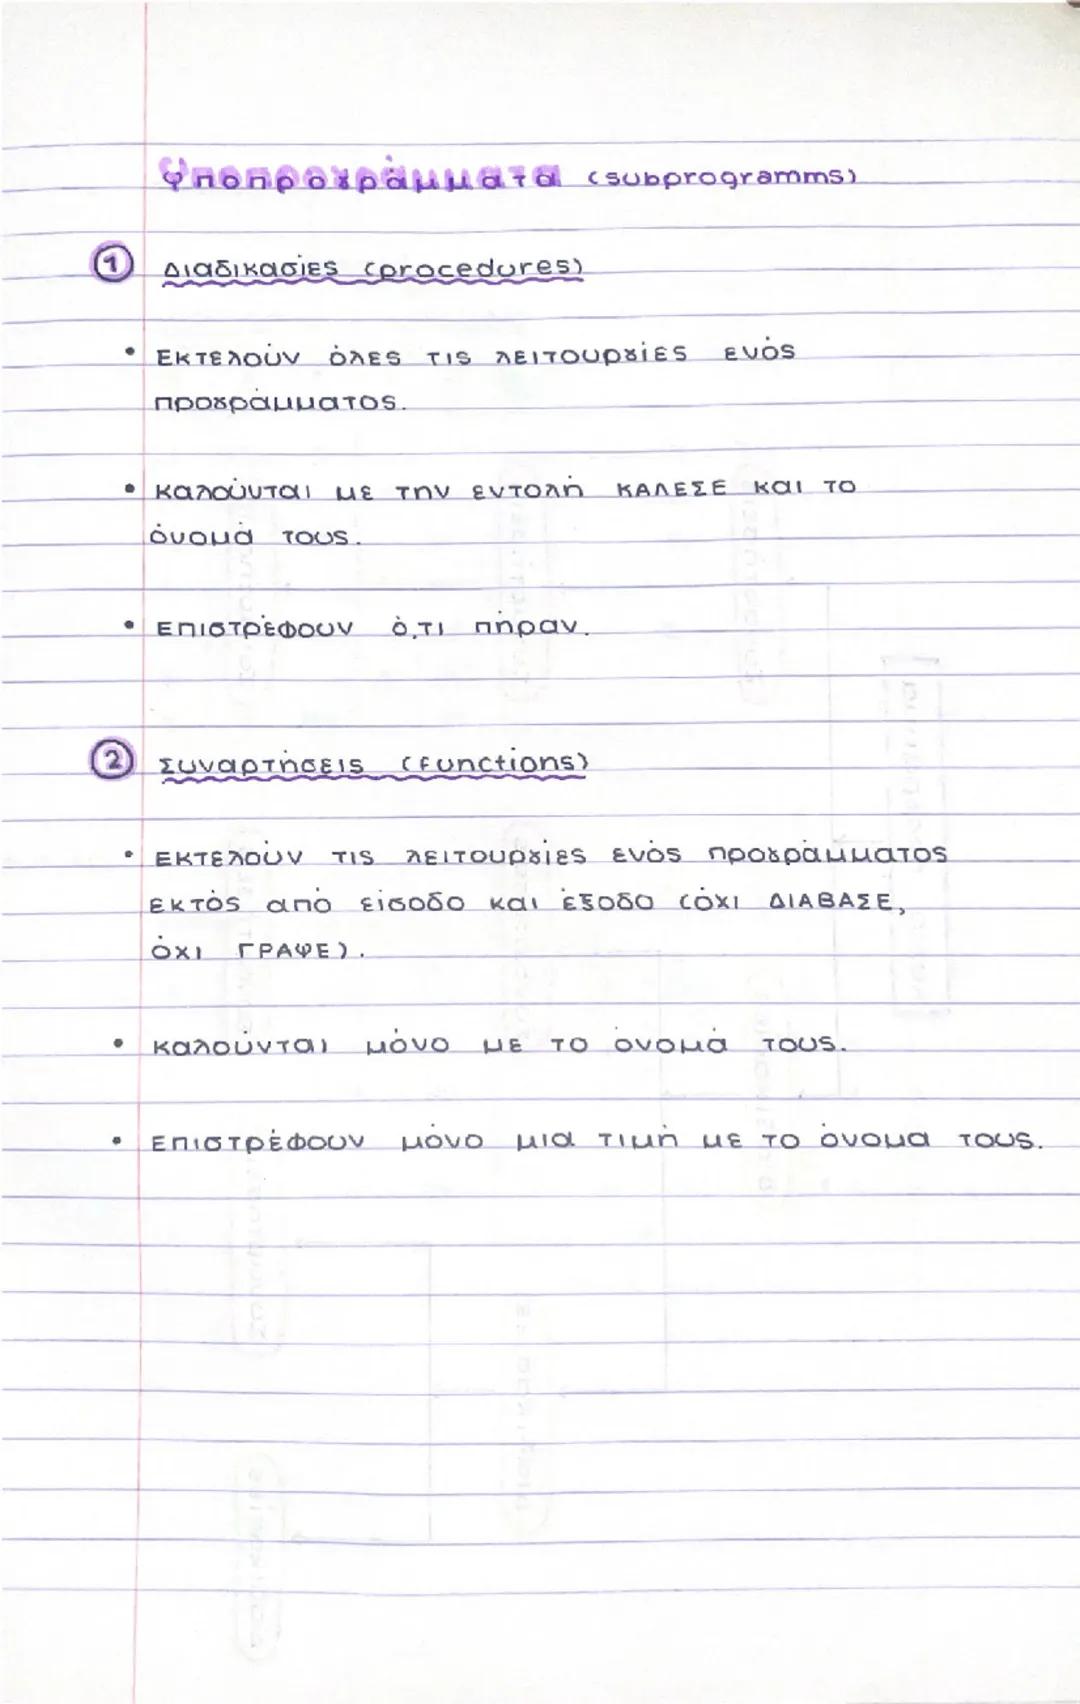 Υποπρογράμματα (subprogramms)
① Διαδικασίες (procedures)
• Εκτελούν όλες τις λειτουργίες ενός
προγράμματος.
• Καλούνται με την εντολή ΚΑΛΕΣΕ και το
όνομά τους.
• Επιστρέφουν ό,τι πήραν.
② Συναρτήσεις (functions)
• Εκτελούν τις λειτουργίες ενός προγράμματος
εκτός από είσοδο και έξοδο (όχι ΔΙΑΒΑΣΕ,
όχι ΓΡΑΨΕ).
• Καλούνται μόνο με το όνομά τους.
• Επιστρέφουν μόνο μια τιμή με το όνομα τους.